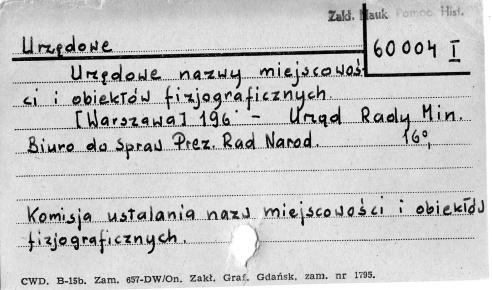 Zakł. Nauk Pomoc. Hist.
Urzędowe
60004 I
Urzędowe nazwy miejscowoś
ci i obiektów fizjograficznych.
[Warszawa] 196 - Urząd Rady Min.
Biuro do Spraw Prez. Rad Narod. 16°,
Komisja ustalania nazw miejscowości i obiektów
fizjograficznych.
CWD. B-15b. Zam. 657-DW/On. Zakł. Graf. Gdańsk, zam. nr 1795.